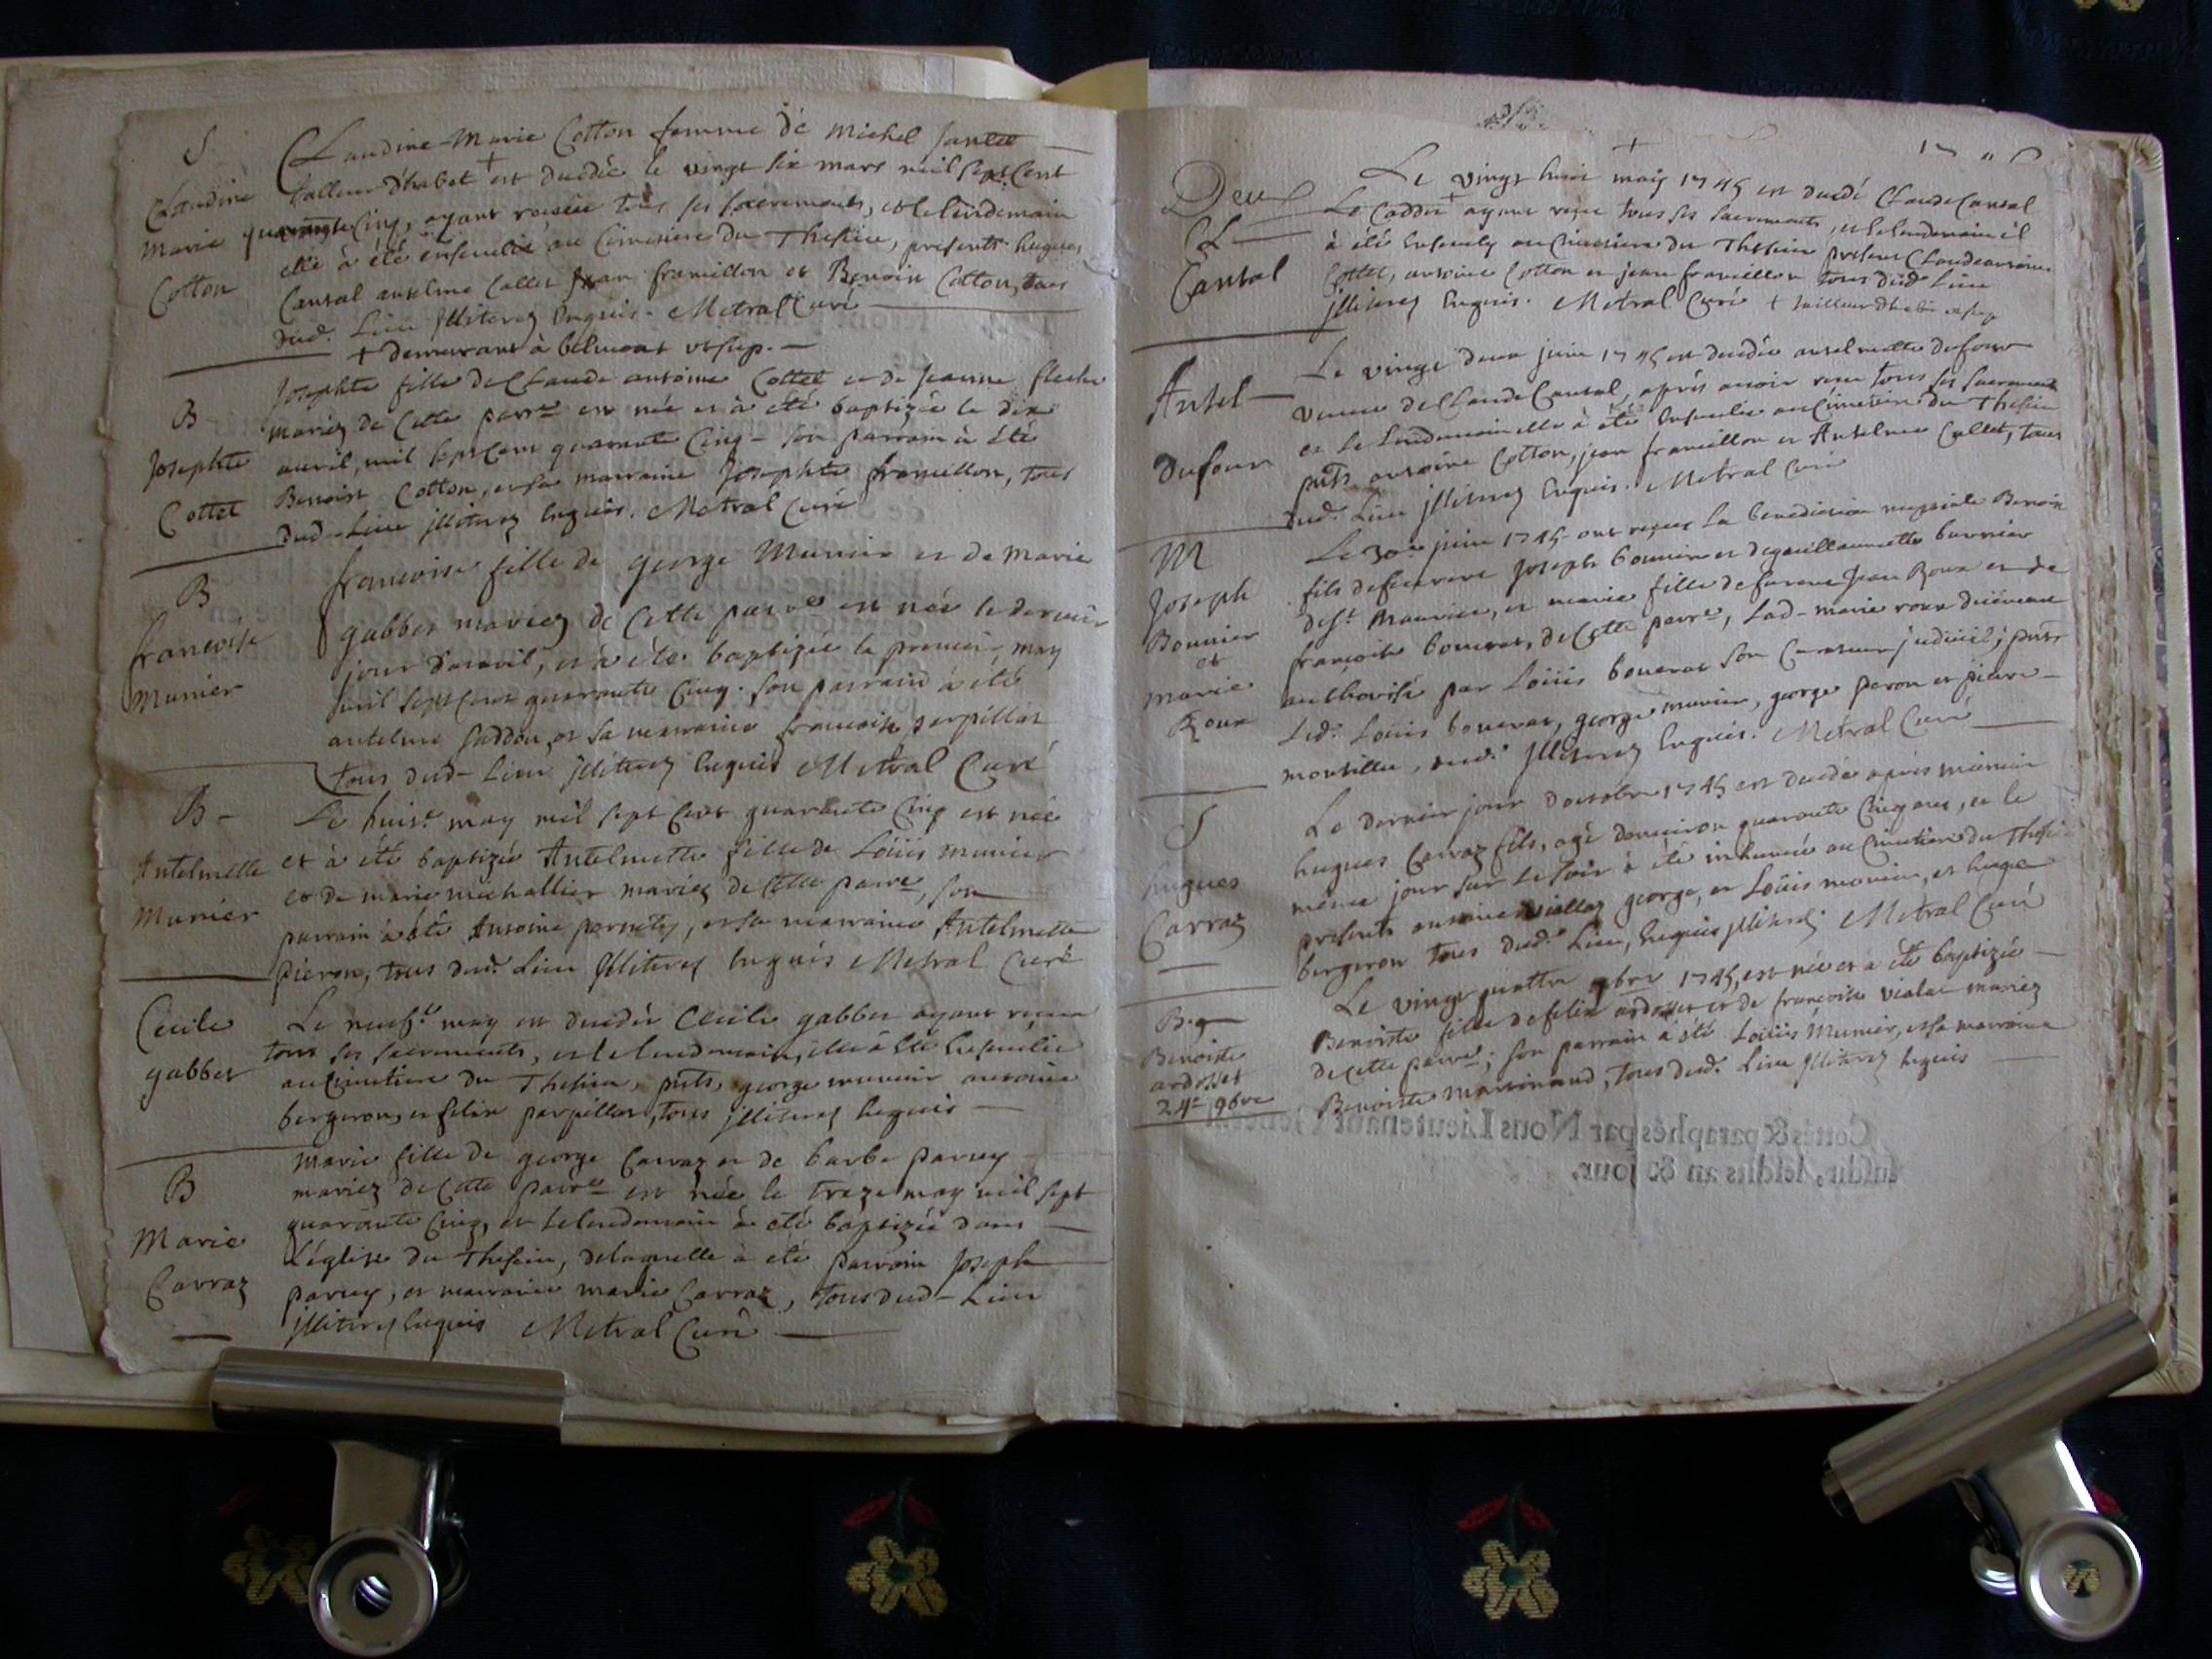 S
Claudine
Marie
Cotton
Claudine-Marie Cotton femme de Michel
tallieur d'habet + est decedée le vingt six mars mil sept cent
quarante cinq, ayant receue tous ses sacrements, et le lendemain
elle à été ensevelie au Cimetiere du Thesieu, presents hugues
Cantal antelme Collet jean framillon et Benoin Cotton, tous
dud. Lieu jlliterez Enquis. Metral Curé
+ demeurant à belmont ut sup.
B
Josephte
Cottet
Josephte fille de Claude antoine Cottet et de Jeanne
mariez de Cette parr.e est née et à été baptizée le dix
avril, mil sept cent quarante Cinq - son parrain à été
Benoist Cotton, et sa marraine Josephte framillon, tous
dud. Lieu jlliterez Enquis. Metral Curé
B
francoise
Munier
francoise fille de george Munier et de Marie
gabbet mariez de Cette parr.e est née le dernier
jour d'avril, et à été baptizée le premier may
mil sept cent quarante Cinq. son parrain à été
antelme et sa marraine francoise parpillon
tous dud. Lieu jlliterez Enquis Metral Curé
B
Antelmette
Munier
Le huis.e may mil sept Cent quarante Cinq est née
et à été baptizée Antelmette fille de Loüis munier
et de marie michallier mariez de Cette parr.e, son
parrain à été Antoine, et sa marraine Antelmette
pieron, tous dud. Lieu jlliterez Enquis Metral Curé
Cecile
gabbet
Le neuf.e may est decedée Cecile gabbet ayant receue
tous ses sacrements, et le lendemain, elle à été Ensevelie
au Cimetiere du Thesieu, pnts, george munier antoine
bergeron, et felix parpillon, tous jlliterez Enquis
B
Marie
Carraz
Marie fille de george Carraz et de barbe parvey
mariez de Cette parr.e est née le treze may mil sept
quarante Cinq, et le lendemain à été baptizée dans
L'église du Thesieu, de laquelle à été parrain Joseph
parvey, et marraine marie Carraz, tous dud. Lieu
jlliterez Enquis Metral Curé
Cl
Cantal
Le vingt huit may 1745 est decedé Claude Cantal
Le Caddet + ayant receu tous ses sacrements, et le lendemain il
à été Ensevely au Cimetiere du Thesieu presents Claude antoine
Cottet, antoine Cotton et jean framillon tous dud. Lieu
jlliterez Enquis. Metral Curé + tailleur d'habi
Antel
Dufour
Le vingt deux juin 1745 est decedée antelmette dufour
veuve de Claude Cantal, après avoir receu tous ses sacrements
et le lendemain elle à été Ensevelie au Cimetiere du Thesieu
pnts antoine Cotton, jean framillon et Antelme Collet, tous
dud. Lieu jlliterez Enquis. Metral Curé
M
Joseph
Bounier
et
marie
Roux
Le 30.e juin 1745 ont receus la benediction nuptiale Benoin
fils de feu Joseph bounier et de guillaumette burnier
de S.t Maurice, et marie fille de feu Jean Roux et de
françoise bouvrot, de Cette parr.e, Lad. marie roux
authorisé par Loüis bouvrot son Curateur judiciel; pnts
Led. Loüis bouvrot, george munier, george peron et pierre
dud. jlliterez Enquis. Metral Curé
S
hugues
Carraz
Le dernier jour d'octobre 1745 est decedé apres
hugues Carraz fils, agé d'environ quarante Cinq ans, et le
même jour sur Le soir à été inhumé au Cimetiere du Thesieu
presents antoine george, et Loüis munier, et hugue
bergeron tous dud. Lieu, Enquis jlliterez. Metral Curé
B.
Benoiste
ardosset
24.e 9bre
Le vingt quattre 9bre 1745, est née et à été baptizée
Benoiste fille de felix ardosset et de francoise mariez
de Cette parr.e; son parrain à été Loüis Munier, et sa marraine
Benoiste martinand, tous dud. Lieu jlliterez Enquis
Cottés & paraphés par Nous Lieutenant General
susdit, lesdits an & jour.